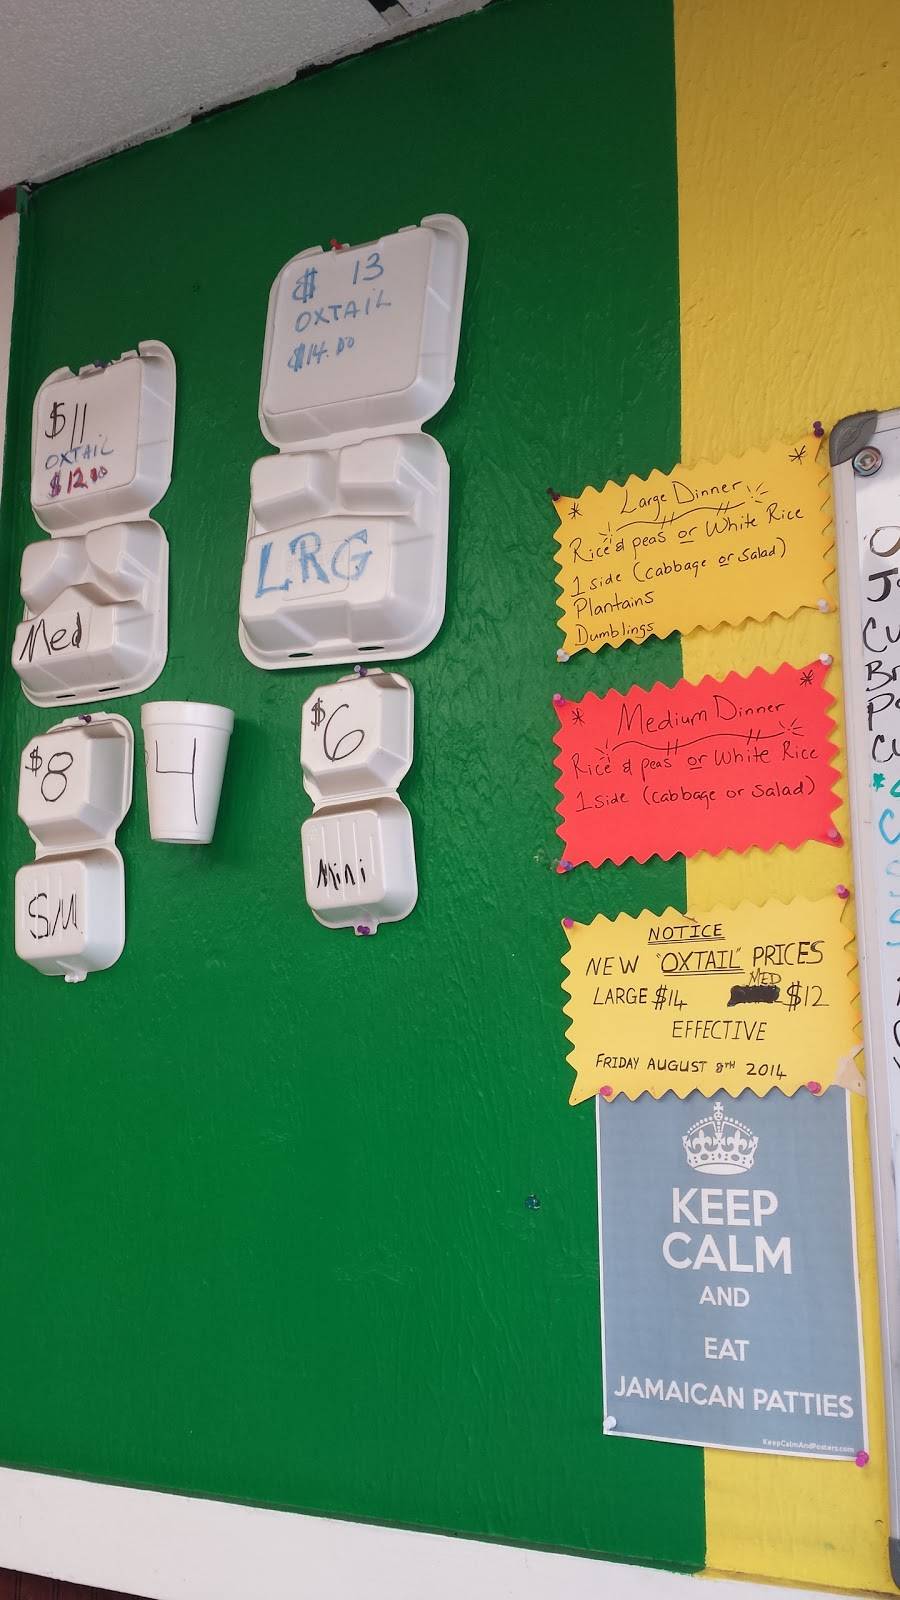 $ 13
OXTAIL
$14.00
LRG
$11
OXTAIL
$12.00
Med
$8
SM
4
$6
Mini
* Large Dinner *
Rice & peas or White Rice
1 side (cabbage or salad)
Plantains
Dumblings
* Medium Dinner *
Rice & peas or White Rice
1 side (cabbage or salad)
NOTICE
NEW "OXTAIL" PRICES
LARGE $14 MED $12
EFFECTIVE
FRIDAY AUGUST 8TH 2014
KEEP
CALM
AND
EAT
JAMAICAN PATTIES
KeepCalmAndPosters.com